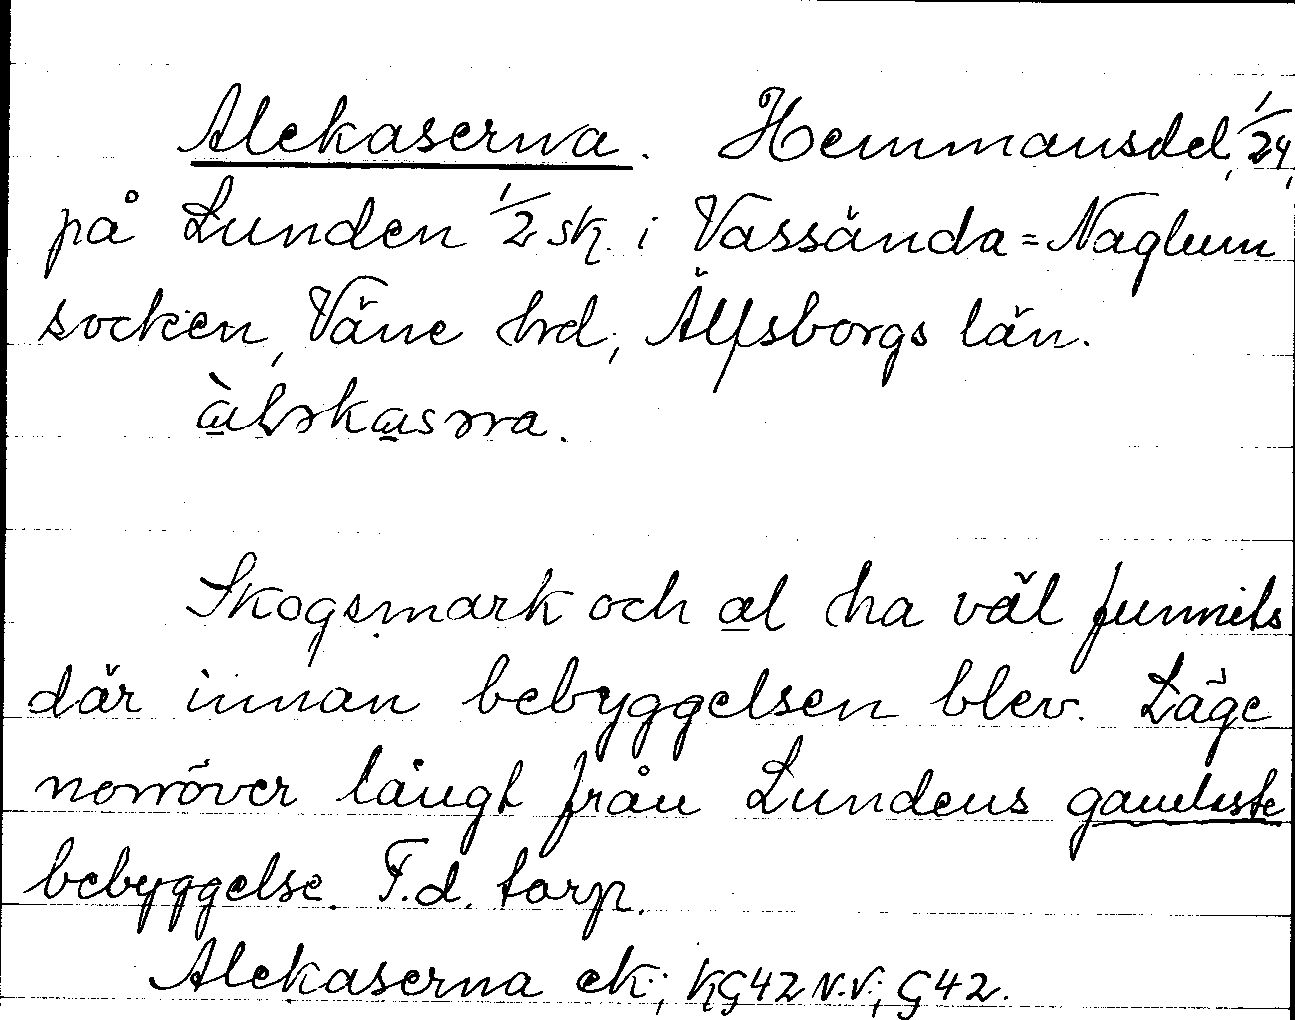 Alekaserna. Hemmansdel, 1/24,
på Lunden 1/2 sk. i Vassända=Naglum
socken, Väne hrd, Älfsborgs län.
Skogsmark och al ha väl funnits
där innan bebyggelsen blev. Läge
norröver långt från Lundens gamlaste
bebyggelse. F.d. torp.
Alekaserna ek.; KG42 N.V.; G42.